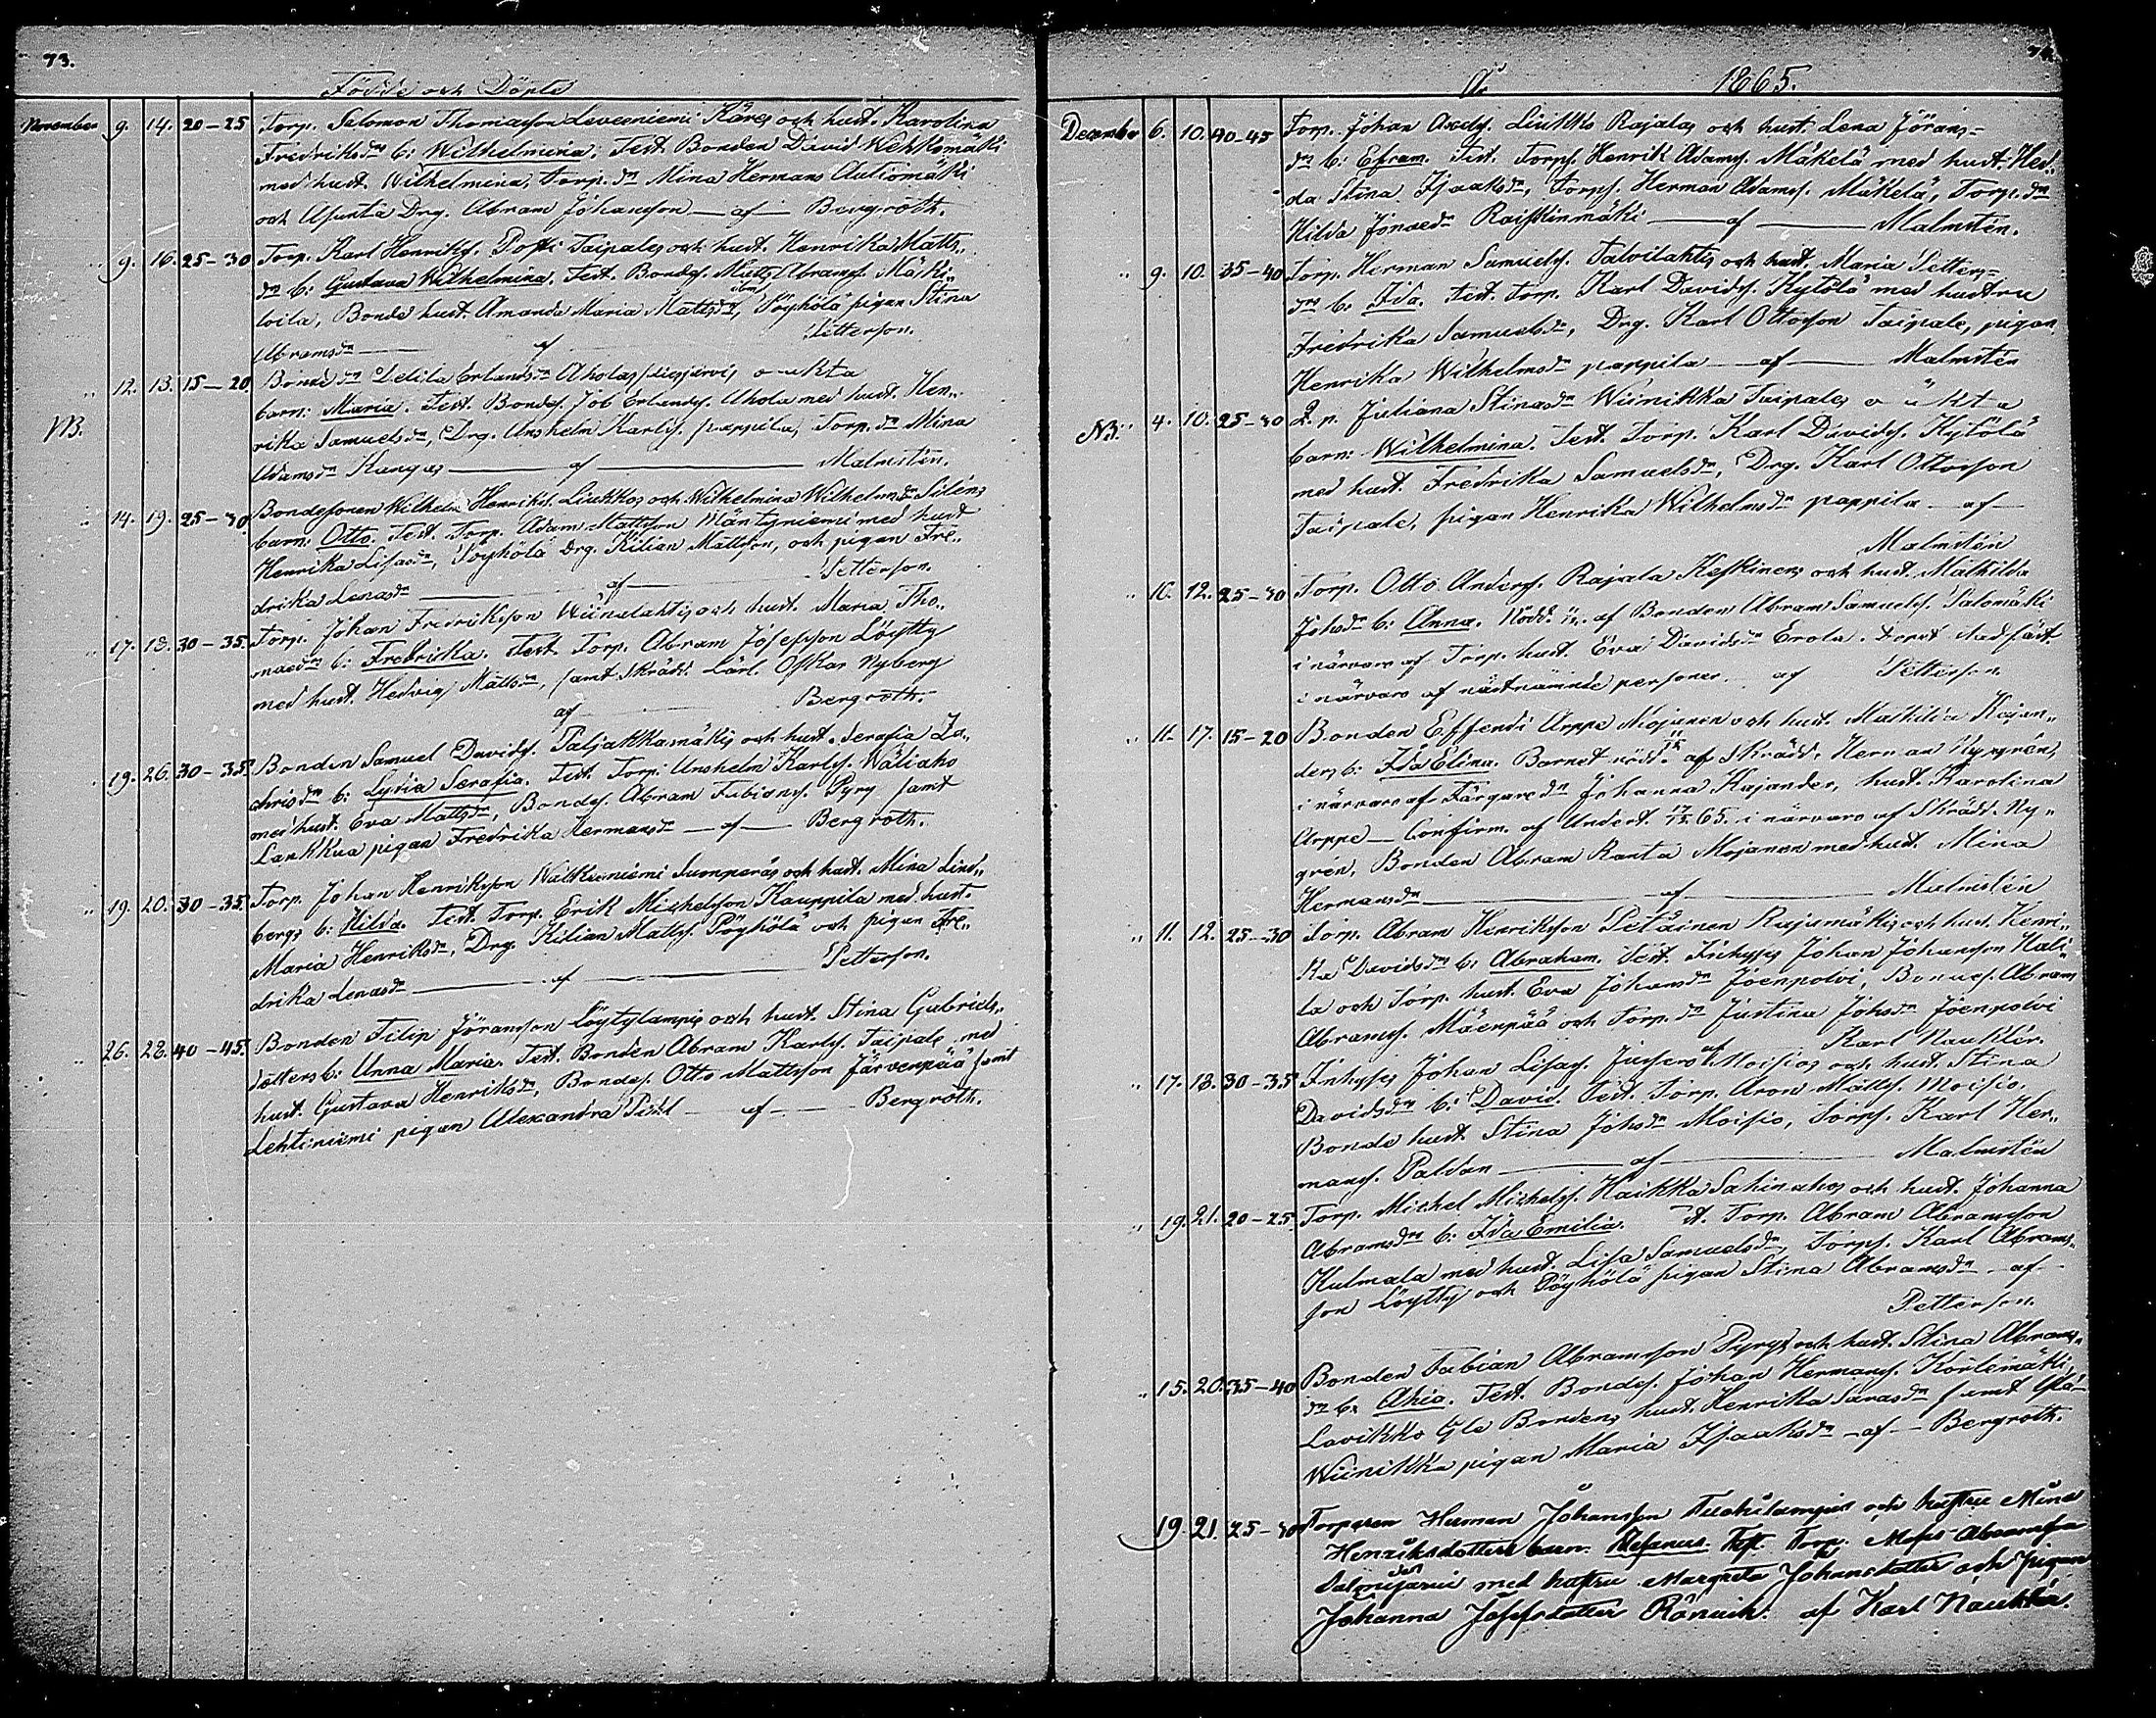 73.
Födde och Döpte
November 9. 14. 20-25 Torp. Salomon Thomasson Leveeniemi Kares och hust. Karolina
Fredriksdrs b: Wilhelmina. Test. Bonden David Wehkomäki
med hust. Wilhelmina, Torp. dn Mina Hermans Autiomäki
och Asunta Drg. Abram Johansson — af — Bergroth.
„ 9. 16. 25-30 Torp. Karl Henriks. Potti Taipales och hust. Henrika Matts„
drs b: Gustava Wilhelmina. Test. Bondes. Matts Abrams. Mäki„
loila, Bonde hust. Amanda Maria Mattsdn, Pöyhölä pigan Stina
Abramsdn — af — Petterson.
„ 12. 13. 15-20 Bonde dn Delila Erlandsdn Aholas o äkta
VB. barn: Maria. Test. Bondes. Job Erlands. Ahola med hust. Hen„
rika Samuelsdn, Drg. Anshelm Karls. pappila, Torp. dn Mina
Adamsdn Kangas — af — Malmstén.
„ 14. 19. 25-30 Bondesonen Wilhelm Henriks. Liukkos och Wilhelmina Wilhelmsdn Siléns
barn: Otto. Test. Torp. Adam Mattsson Mäntyniemi med hust
Henrika Lisasdn, Pöyhölä Drg. Kilian Mattsson, och pigan Fre„
drika Lenasdn — af — Petterson.
„ 17. 18. 30-35. Torp. Johan Fredriksson Wiinalahtis och hust. Maria Tho„
masdrs b: Fredrika. Test. Torp. Abram Josefsson Löytty
med hust. Hedvig Mattsdn, samt Skrädd. Lärl. Oskar Nyberg
af Bergroth.
„ 19. 26. 30-35. Bonden Samuel Davids. Paljakkamäkis och hust. Serafia Za„
chrisdrs b: Lydia Serafia. Test. Torp. Anshelm Karls. Wäliaho
med hust. Eva Mattsdn, Bondes. Abram Fabians. Pyry samt
Laukkua pigan Fredrika Hermansdn — af — Bergroth.
„ 19. 20. 30-35. Torp. Johan Henriksson Walkeeniemi Sumperäs och hust. Mina Lind„
bergs b: Hilda. Test. Torp. Erik Michelsson Kauppila med hust.
Maria Henriksdn, Drg. Kilian Matts. Pöyhölä och pigan Fre„
drika Lenasdn — af — Petterson.
„ 26. 28. 40-45. Bonden Filip Jöransson Löytylampis och hust. Stina Gabriels„
dotters b: Anna Maria. Test. Bonden Abram Karls. Taipale med
hust. Gustava Henriksdn, Bondes. Otto Mattsson Järvenpää samt
Lehtiniemi pigan Alexandra — af — Bergroth.
74.
År 1865.
December 6. 10. 40-45 Torp. Johan Axels. Liukko Rajalas och hust. Lena Jörans=
drs b: Efram. Test. Torps. Henrik Adams. Mäkelä med hust. Hed„
da Stina Isaaksdn, Torps. Herman Adams. Mäkelä, Torp. dn
Hilda Jonasdn Raiskinmäki — af — Malmstén.
„ 9. 10. 35-40 Torp. Herman Samuels. Talvilahtis och hust. Maria Petters=
drs b: Ida. Test. Torp. Karl Davids. Kytölä med hustru
Fredrika Samuelsdn, Drg. Karl Ottosson Taipale, pigan
Henrika Wilhelmsdn pappila — af — Malmstén
NB. „ 4. 10. 25-30 Q. p. Juliana Stinasdn Wiinikka Taipales o äkta
barn: Wilhelmina. Test. Torp. Karl Davids. Kytölä
med hust. Fredrika Samuelsdn, Drg. Karl Ottosson
Taipale, pigan Henrika Wilhelmsdn pappila — af —
Malmstén
„ 10. 12. 25-30 Torp. Otto Anders. Rajala Keskinens och hust. Mathilda
Johsdrs b: Anna. Nödd. af Bonden Abram Samuels. Salomäki
i närvaro af Torp. hust. Eva Davidsdn Erola. Dopet stadfäst.
i närvaro af nästnämnde personer. af Petterson.
„ 11. 17. 15-20 Bonden Effendi Arppe Mojanen och hust. Mathilda Kajan„
ders b: Ida Elina. Barnet nödd. af Skrädd. Herman Nygrén,
i närvaro af Färgare dn Johanna Kajander, hust. Karolina
Arppe — Confirm. af Undert. 17/12 65. i närvaro af Skrädd. Ny„
grén, Bonden Abram Ranta Mojanen med hust. Mina
Hermansdn — af — Malmstén
„ 11. 12. 25-30 Torp. Abram Henriksson Petäinen Rajamäkis och hust. Henri„
ka Davidsdrs b: Abraham. Test. Inhyses Johan Johansson Hali„
la och Torp. hust. Eva Johansdn Joenpolvi, Bondes. Abram
Abrams. Mäenpää och Torp. dn Justina Johsdn Joenpolvi
af Karl Nauklér.
„ 17. 18. 30-35 Inhyses Johan Lisas. Moisios och hust. Stina
Davidsdrs b: David. Test. Torp. Aron Matts. Moisio,
Bonde hust. Stina Johsdn Moisio, Torps. Karl Her„
mans. Paldan — af — Malmstén
„ 19. 21. 20-25 Torp. Michel Michels. Haikka Sahinahos och hust. Johanna
Abramsdrs b: Ida Emilia. Test. Torp. Abram Abramsson
Kulmala med hust. Lisa Samuelsdn, Torps. Karl Abrams„
son Löytty och Pöyhölä pigan Stina Abramsdn — af —
Petterson.
„ 15. 20. 35-40 Bonden Fabian Abramsson Pyrys och hust. Stina Abrams„
drs b: Ahia. Test. Bondes. Johan Hermans. Kortemäki,
Lavikko Gla Bondens hust. Henrika Sarasdn samt Gla
Wiinikka pigan Maria Isaaksdn — af — Bergroth.
19. 21. 25-30 Torparen Herman Johansson Tuohilampis och hustru Mina
Henriksdotters barn: Stefanus. Test. Torp. Mats Abramsson
Salmijärvi med hustru Margreta Johansdotter och pigan
Johanna Josefsdotter Rönnvik. af Karl Nauklér.